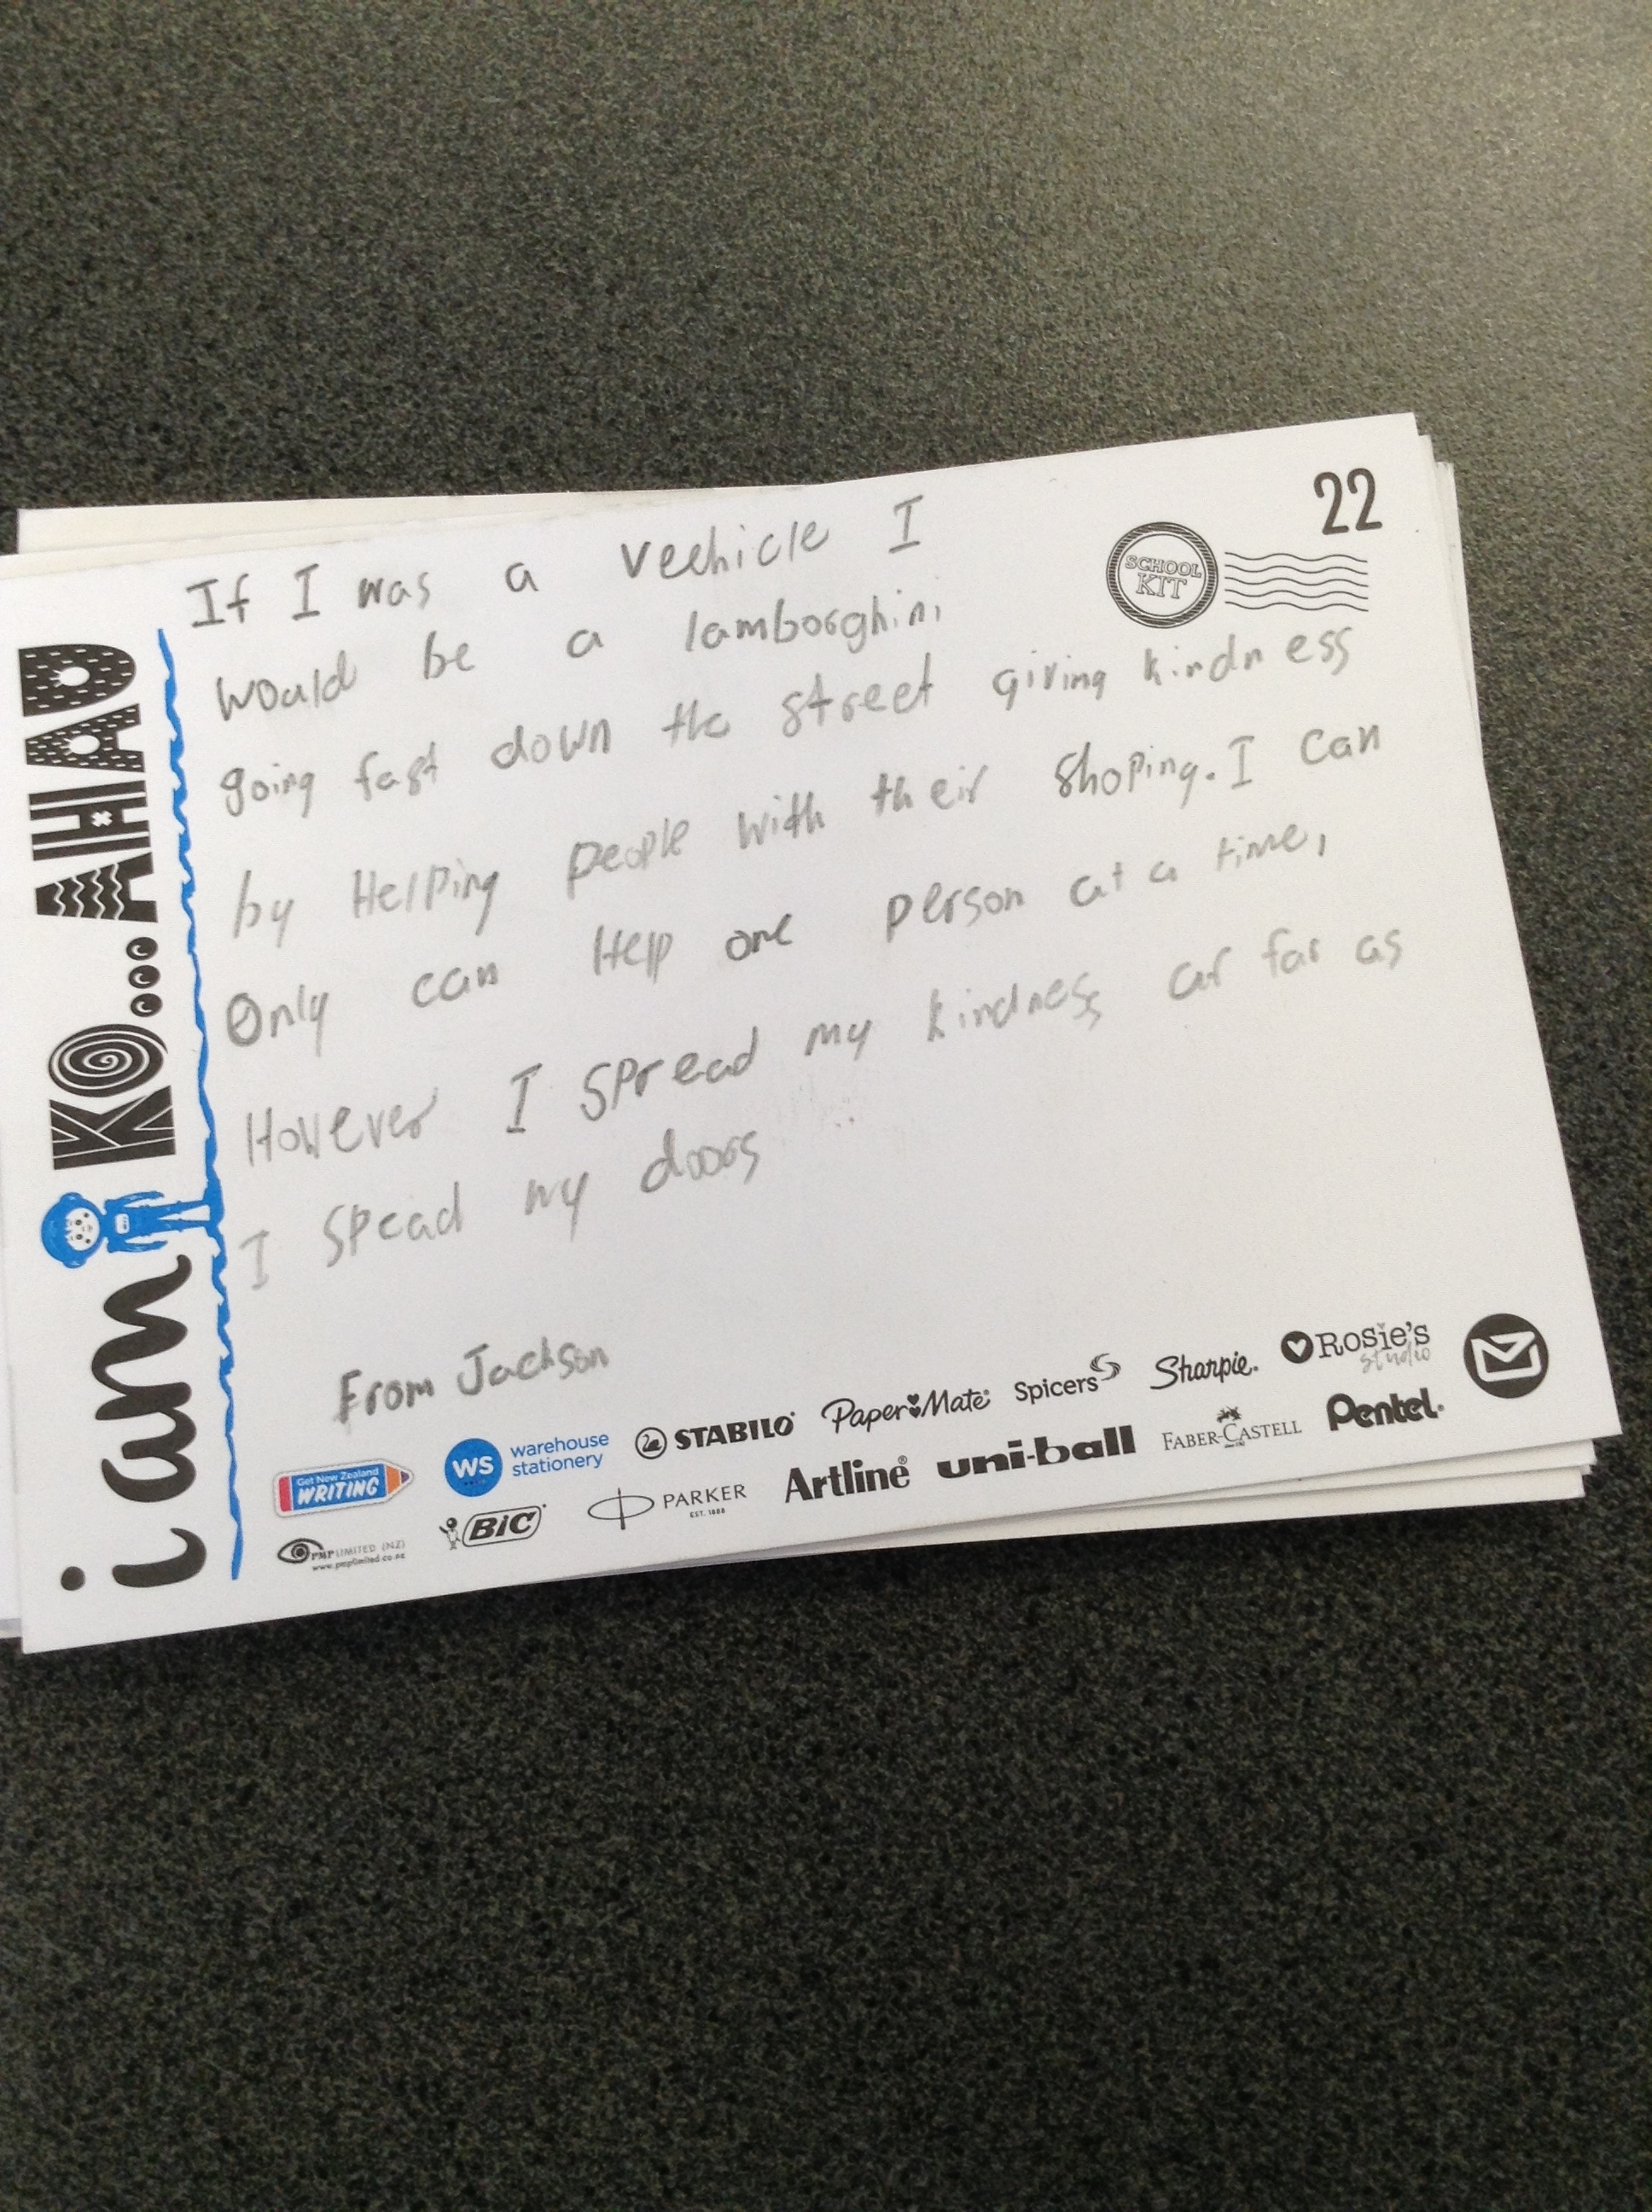 22
SCHOOL
KIT
If I was a veehicle I
would be a lamborghini
going fast down the street giving kindness
by Helping people with their shoping. I can
Only can Help one person at a time,
However I spread my kindness as far as
I spead my doors
From Jackson
i am KO...AHAU
Get New Zealand
WRITING
WS warehouse
stationery
STABILO
Paper Mate
Spicers
Sharpie
Rosie's
studio
PMP LIMITED (NZ)
www.pmplimited.co.nz
BIC
PARKER
EST. 1888
Artline
uni-ball
FABER-CASTELL
Pentel